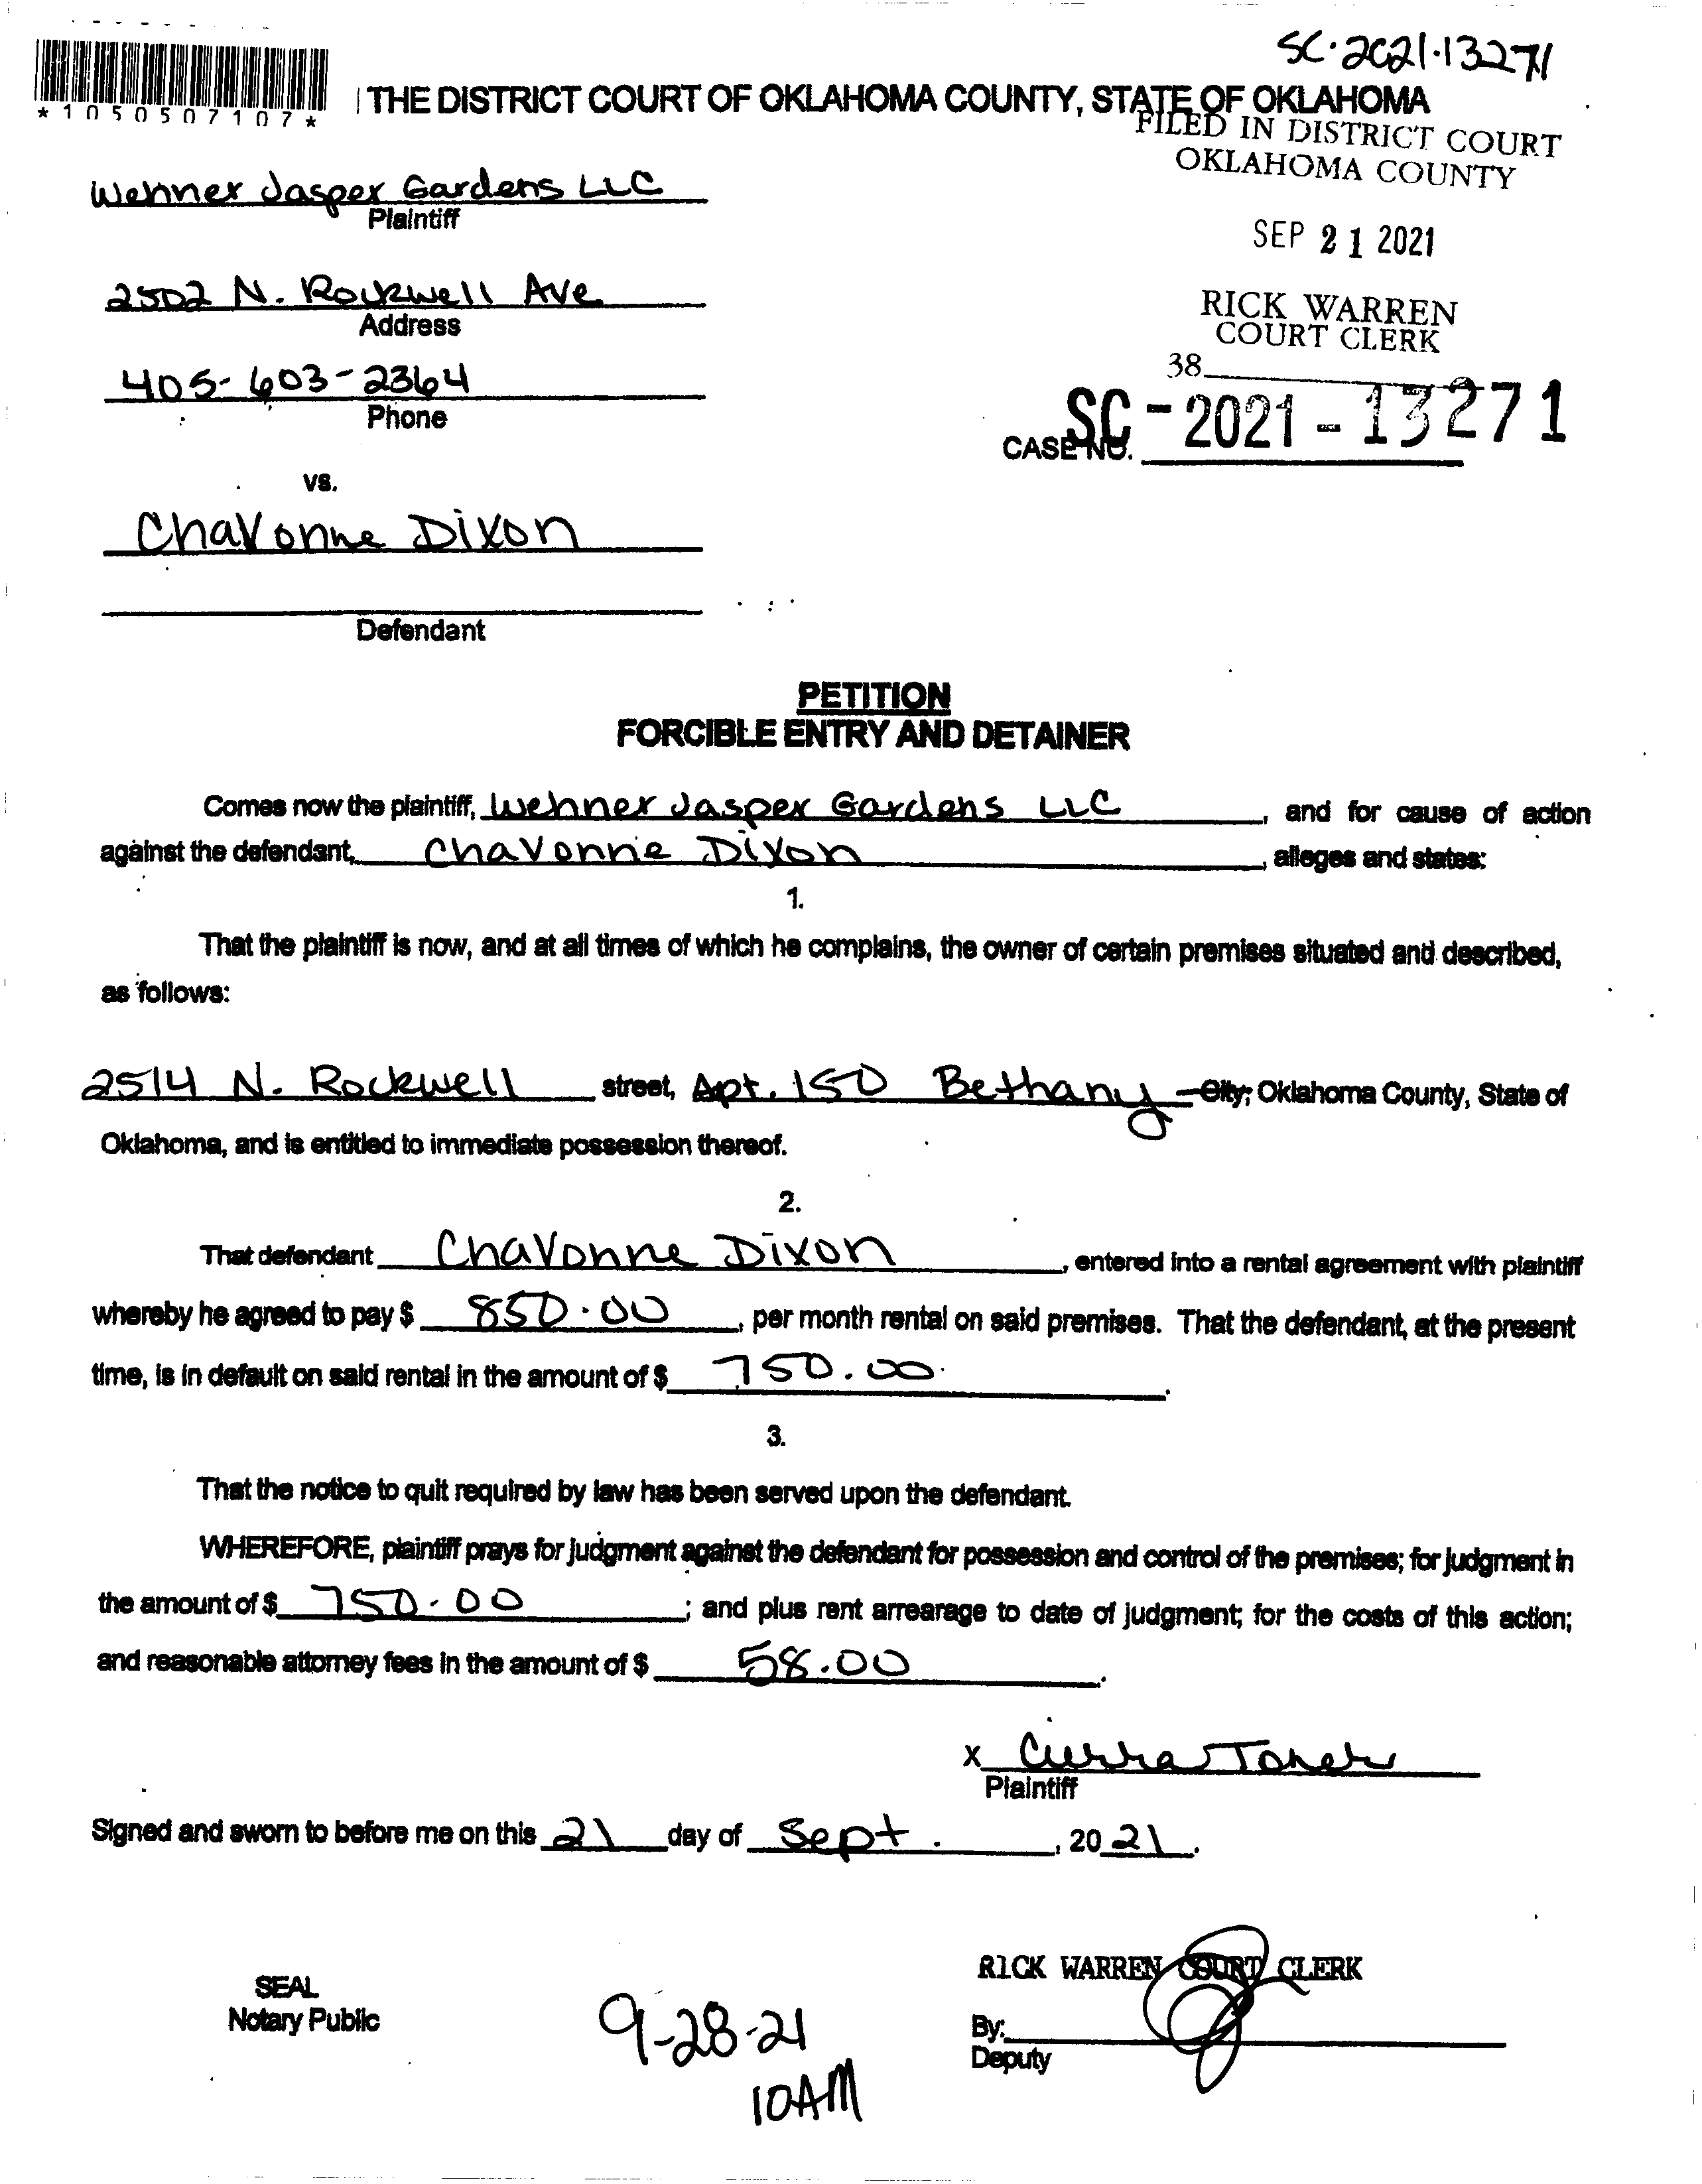 SC-2021-13271
*1050507107*
THE DISTRICT COURT OF OKLAHOMA COUNTY, STATE OF OKLAHOMA
FILED IN DISTRICT COURT
OKLAHOMA COUNTY
Wehner Jasper Gardens LLC
Plaintiff
SEP 21 2021
2502 N. Rockwell Ave
Address
RICK WARREN
COURT CLERK
38
405-603-2364
Phone
CASE NO. SC-2021-13271
vs.
Chavonne Dixon
Defendant
PETITION
FORCIBLE ENTRY AND DETAINER
Comes now the plaintiff, Wehner Jasper Gardens LLC, and for cause of action
against the defendant, Chavonne Dixon, alleges and states:
1.
That the plaintiff is now, and at all times of which he complains, the owner of certain premises situated and described,
as follows:
2514 N. Rockwell street, Apt. 150 Bethany City; Oklahoma County, State of
Oklahoma, and is entitled to immediate possession thereof.
2.
That defendant Chavonne Dixon, entered into a rental agreement with plaintiff
whereby he agreed to pay $ 850.00, per month rental on said premises. That the defendant, at the present
time, is in default on said rental in the amount of $ 750.00.
3.
That the notice to quit required by law has been served upon the defendant.
WHEREFORE, plaintiff prays for judgment against the defendant for possession and control of the premises; for judgment in
the amount of $ 750.00; and plus rent arrearage to date of judgment; for the costs of this action;
and reasonable attorney fees in the amount of $ 58.00.
X
Plaintiff
Signed and sworn to before me on this 21 day of Sept., 2021.
RICK WARREN COURT CLERK
SEAL
Notary Public
9-28-21
10AM
By:
Deputy